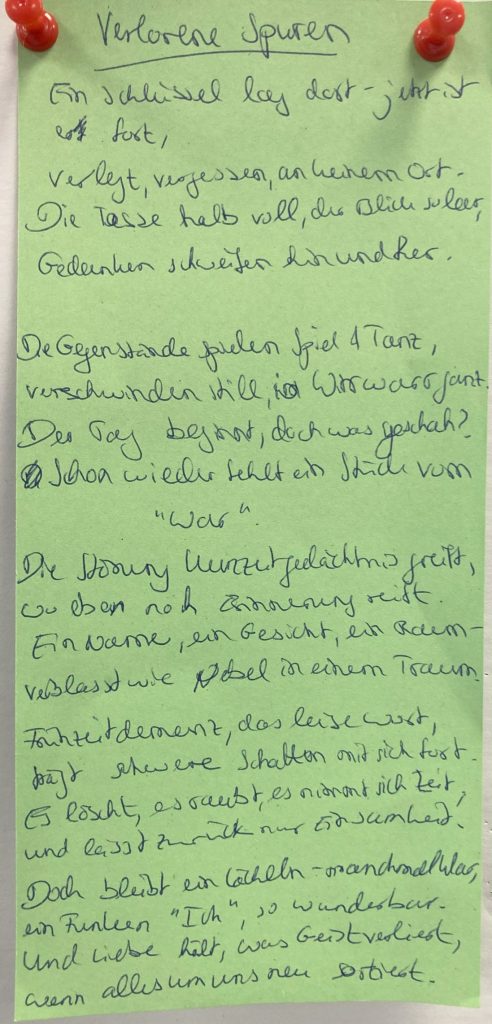 Verlorene Spuren
Ein Schlüssel lag dort - jetzt ist
er fort,
verlegt, vergessen, an keinem Ort.
Die Tasse halb voll, der Blick so leer,
Gedanken schweifen hin und her.
Die Gegenstände spielen Spiel & Tanz,
verschwinden still, im Wirrwarr ganz.
Der Tag beginnt, doch was geschah?
Schon wieder fehlt ein Stück vom
"War".
Die Störung Kurzzeitgedächtnis greift,
wo eben noch Erinnerung reift.
Ein Name, ein Gesicht, ein Raum -
verblasst wie Nebel in einem Traum.
Frühzeitdemenz, das leise Wort,
trägt schwere Schatten mit sich fort.
Es löscht, es raubt, es nimmt sich Zeit,
und lässt zurück nur Einsamkeit.
Doch bleibt ein Lächeln - manchmal klar,
ein Funken "Ich", so wunderbar.
Und Liebe hält, was Geist verliert,
wenn alles um uns neu sortiert.